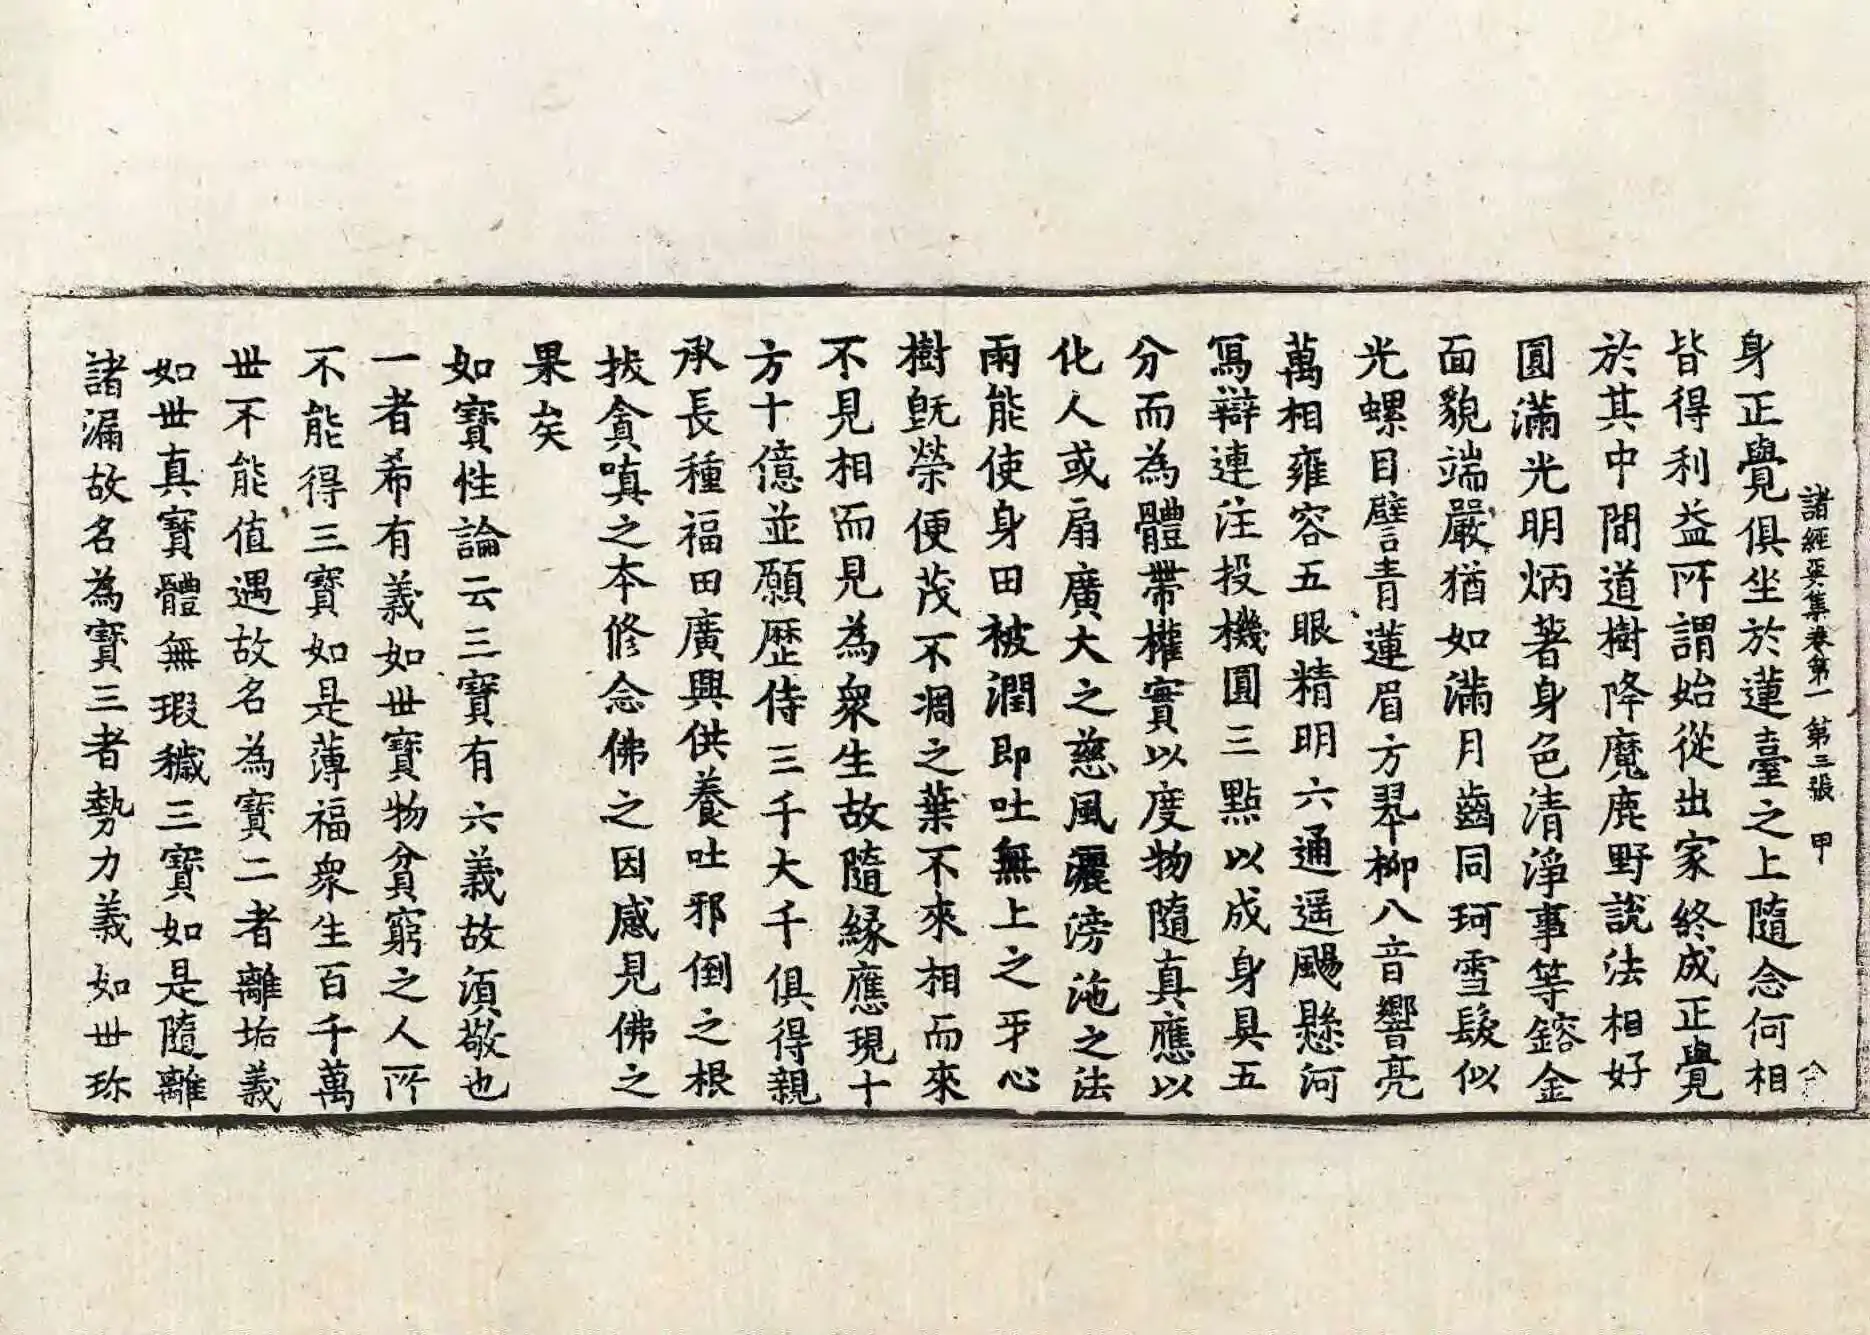 諸經要集卷第一 第三張 甲
身正覺俱坐於蓮臺之上隨念何相
皆得利益所謂始從出家終成正覺
於其中間道樹降魔鹿野說法相好
圓滿光明炳著身色清淨事等鎔金
面貌端嚴猶如滿月齒同珂雪髮似
光螺目譬青蓮眉方翠柳八音響亮
萬相雍容五眼精明六通遥颺懸河
寫辯連注投機圓三點以成身具五
分而為體帶權實以度物隨真應以
化人或扇廣大之慈風灑滂沲之法
雨能使身田被潤即吐無上之牙心
樹旣榮便茂不凋之葉不來相而來
不見相而見為衆生故隨緣應現十
方十億並願歷侍三千大千俱得親
承長種福田廣興供養吐邪倒之根
拔貪嗔之本修念佛之因感見佛之
果矣
如寶性論云三寶有六義故須敬也
一者希有義如世寶物貧窮之人所
不能得三寶如是薄福衆生百千萬
世不能值遇故名為寶二者離垢義
如世真寶體無瑕穢三寶如是隨離
諸漏故名為寶三者勢力義如世珎